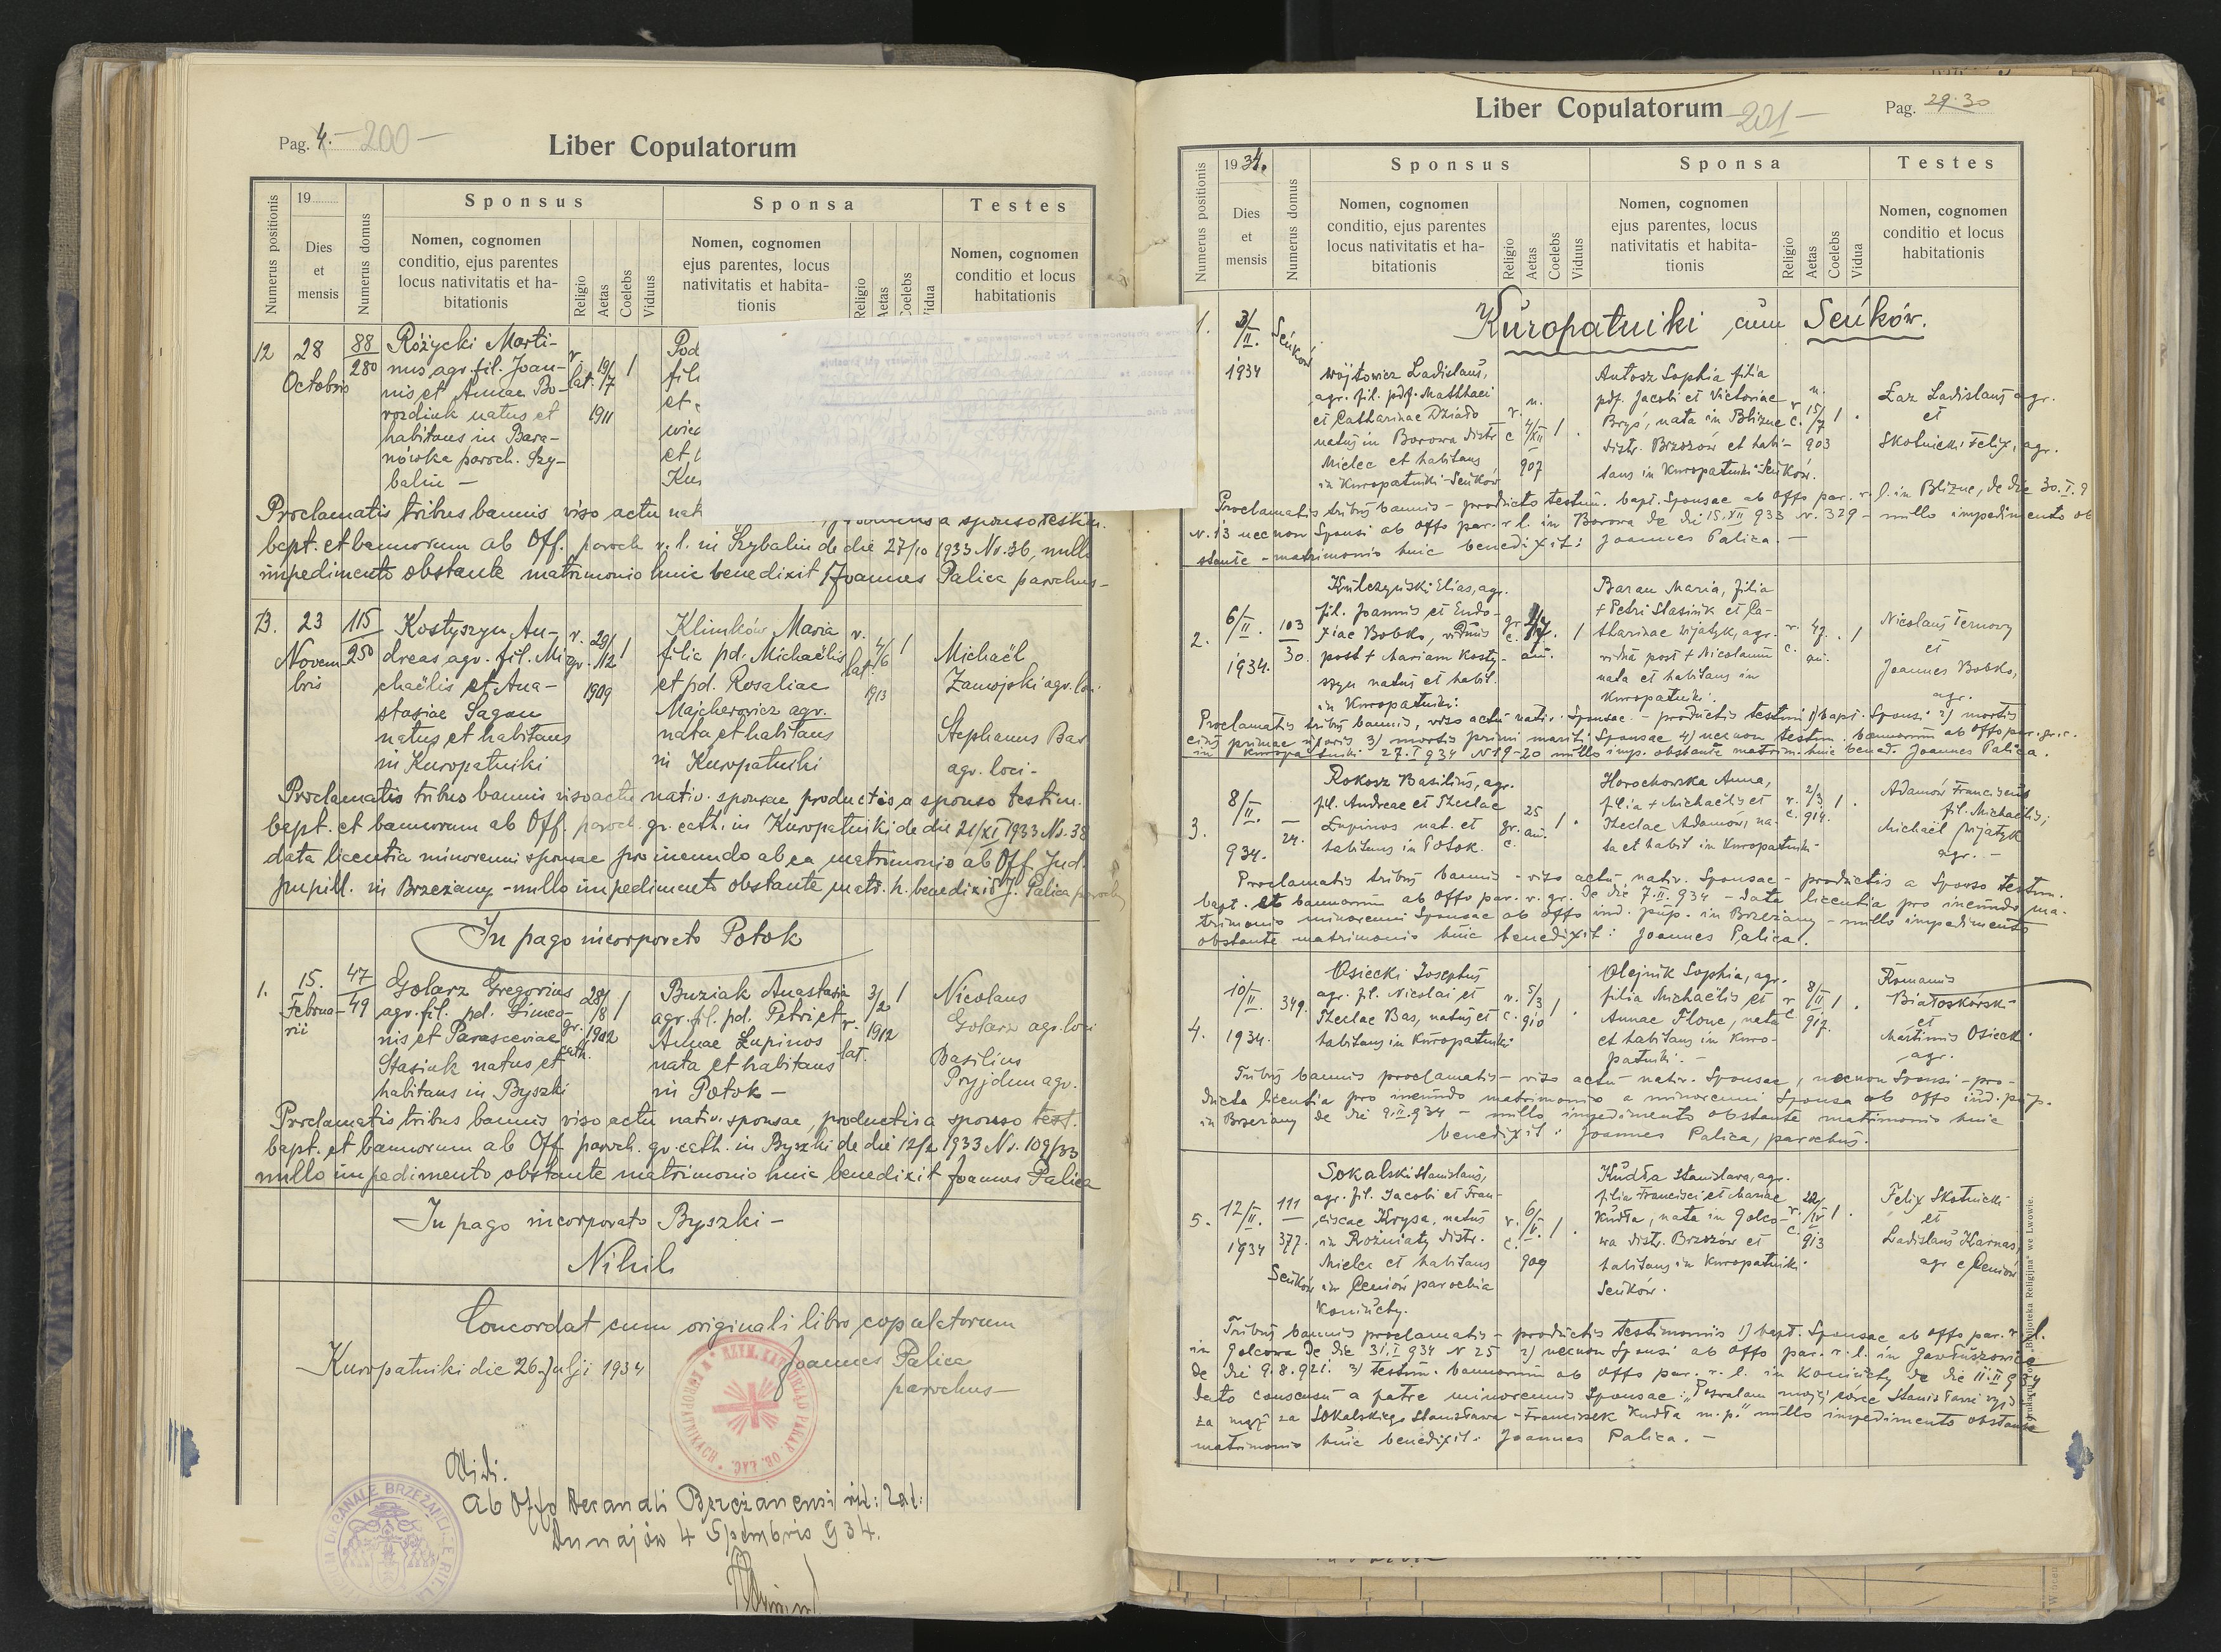 Pag. 4. 200
Liber Copulatorum
Numerus positionis
19
Dies
et
mensis
Numerus domus
Sponsus
Nomen, cognomen
conditio, ejus parentes
locus nativitatis et ha-
bitationis
Religio
Aetas
Coelebs
Viduus
Sponsa
Nomen, cognomen
ejus parentes, locus
nativitatis et habita-
tionis
Religio
Aetas
Coelebs
Vidua
Testes
Nomen, cognomen
conditio et locus
habitationis
12 28 Octobris
88
280
Różycki Marti-
nus agr. fil. Joan-
nis et Annae Bo-
rozdiuk natus et
habitans in Bara-
nówka paroch. Szy-
balin —
r. lat. 19/7 1911 1
Pod
fili
et
wicz
et
Kur
Proclamatis tribus bannis viso actu nat
a sponso testim.
bapt. et bannorum ab Off. paroch. r. l. in Szybalin de die 27/10 1933 No. 36, nullo
impedimento obstante matrimonio huic benedixit Joannes Palica parochus —
13. 23 Novem-
bris
115
250
Kostyszyn An-
dreas agr. fil. Mi-
chaëlis et Ana-
stasiae Sagan
natus et habitans
in Kuropatniki
r. gr. 29/12 1909 1
Klimków Maria
filia pd. Michaëlis
et pd. Rosaliae
Majcherowicz agr.
nata et habitans
in Kuropatniki
r. lat. 4/6 1913 1
Michaël
Zamojski agr. loci
Stephanus Bas
agr. loci —
Proclamatis tribus bannis viso actu nativ. sponsae productis a sponso testim.
bapt. et bannorum ab Off. paroch. gr. cath. in Kuropatniki de die 21/XI 1933 No. 38
data licentia minorenni sponsae pro ineundo ab ea matrimonio ab Off. Jud.
pupill. in Brzeżany – nullo impedimento obstante matr. h. benedixit J. Palica parochus
In pago incorporato Potok
1. 15. Februa-
rii
47
49
Golarz Gregorius
agr. fil. pd. Simeo-
nis et Parasceviae
Stasiuk natus et
habitans in Byszki
gr. cath. 28/8 1902 1
Buziak Anastasia
agr. fil. pd. Petri et
Annae Łupinos
nata et habitans
in Potok —
r. lat. 3/2 1912 1
Nicolaus
Golarz agr. loci
Basilius
Pryjdun agr.
Proclamatis tribus bannis viso actu nativ. sponsae, productis a sponso test.
bapt. et bannorum ab Off. paroch. gr. cath. in Byszki de die 12/2 1933 No. 109/33
nullo impedimento obstante matrimonio huic benedixit Joannes Palica
In pago incorporato Byszki —
Nihil
Concordat cum originali libro copulatorum
Kuropatniki die 26. Julji 1934
Joannes Palica
parochus —
Vidi.
Ab Offo Decanali Brzeżanensi rit: lat:
Dunajów 4 Sptmbris 934.
Liber Copulatorum 201
Pag. 29.30
Numerus positionis
1934.
Dies
et
mensis
Numerus domus
Sponsus
Nomen, cognomen
conditio, ejus parentes
locus nativitatis et ha-
bitationis
Religio
Aetas
Coelebs
Viduus
Sponsa
Nomen, cognomen
ejus parentes, locus
nativitatis et habita-
tionis
Religio
Aetas
Coelebs
Vidua
Testes
Nomen, cognomen
conditio et locus
habitationis
Kuropatniki cum Seńków.
1. 3/II. 1934
Seńków
Wojtowicz Ladislaus,
agr. fil. pdf. Matthaei
et Catharinae Dziado
natus in Borowa distr
Mielec et habitans
in Kuropatniki-Seńków
r. c. 4/XII 907 1
Antosz Sophia filia
pdf. Jacobi et Victoriae
Bryś, nata in Blizne
distr. Brzozów et habi-
tans in Kuropatniki-Seńków.
r. c. 15/7 903 1
Łaz Ladislaus agr.
et
Skotnicki Felix, agr.
Proclamatis tribus bannis – producto testim. bapt. Sponsae ab Offo par. r. l. in Blizne, de die 30.I.9
N. 13 necnon Sponsi ab Offo par. r l. in Borowa de die 15.XII 933 N. 329 – nullo impedimento ob
stante – matrimonio huic benedixit: Joannes Palica. —
2. 6/II. 1934.
103
30.
Kulczyński Elias, agr.
fil. Joannis et Eudo-
xiae Bobko, viduus
post + Mariam Kosty-
szyn natus et habit.
in Kuropatniki.
gr. c. an. 1
Baran Maria, filia
+ Petri Stasiuk et Ca-
tharinae Wijatyk, agr.
vidua post + Nicolaum
nata et habitans in
Kuropatniki.
r. c. 47. an. 1
Nicolaus Ternowy
et
Joannes Bobko,
agr.
Proclamatis tribus bannis, viso actu nativ. Sponsae – productis testim 1) bapt. Sponsi 2) mortis
eius primae uxoris 3) mortis primi mariti Sponsae 4) necnon testim. bannorum ab Offo par. gr. c.
in Kuropatniki 27.I 934 N 19-20 nullo imp. obstante matrim. huic bened. Joannes Palica.
3. 8/II. 934.
—
24.
Rokosz Basilius, agr.
fil. Andreae et Theclae
Łupinos nat. et
habitans in Potok.
gr. c. 25 an. 1
Horochowska Anna,
filia + Michaëlis et
Theclae Adamów, na-
ta et habit in Kuropatniki.
r. c. 2/3 914. 1
Adamów Franciscus
fil. Michaëlis;
Michaël Wijatyk
agr. —
Proclamatis tribus bannis – viso actu nativ. Sponsae – productis a Sponso testim.
bapt. et bannorum ab Offo par. r. gr. de die 7.II.934 – data licentia pro ineundo ma-
trimonio minorenni Sponsae ab Offo iud. pup. in Brzeżany – nullo impedimento
obstante matrimonio huic benedixit: Joannes Palica.
4. 10/II 1934.
349.
Osiecki Josephus
agr. fil. Nicolai et
Theclae Bas, natus et
habitans in Kuropatniki.
r. c. 5/3 910 1
Olejnik Sophia, agr.
filia Michaëlis et
Annae Flonc, nata
et habitans in Kuro-
patniki. —
r. c. 8/II 917. 1
Romanus
Białoskórski
et
Martinus Osiecki
agr.
Tribus bannis proclamatis – viso actu nativ. Sponsae, necnon Sponsi – pro-
ducta licentia pro ineundo matrimonio a minorenni Sponsa ab Offo iud. pup.
in Brzeżany de die 9.II.934 – nullo impedimento obstante matrimonio huic
benedixit: Joannes Palica, parochus.
5. 12/II. 1934
111
377.
Seńków
Sokalski Stanislaus,
agr. fil. Jacobi et Fran-
ciscae Krysa, natus
in Rożniaty distr.
Mielec et habitans
in Ceniów parochia
Koniuchy.
r. c. 6/II. 909 1
Kudła Stanislava, agr.
filia Francisci et Mariae
Kudła, nata in Golco-
wa distr. Brzozów et
habitans in Kuropatniki.
Seńków.
r. c. 22/IV 913 1
Felix Skotnicki
et
Ladislaus Karnas,
agr e Ceniów
Tribus bannis proclamatis – productis testimoniis 1) bapt. Sponsae ab Offo par. r l.
in Golcowa de die 31.I 934 N 25 2) necnon Sponsi ab Offo par. r. l. in Gawłuszowice
de die 9.8.921. 3) testim. bannorum ab Offo par. r. l. in Koniuchy de die 11.II 934
dato consensu a patre minorennis Sponsae: "Pozwalam mojej córce Stanisławie wyjść
za mąż za Sokalskiego Stanisława – Franciszek Kudła m.p." nullo impedimento obstante
matrimonio huic benedixit: Joannes Palica. —
"Bibljoteka Religijna" we Lwowie.